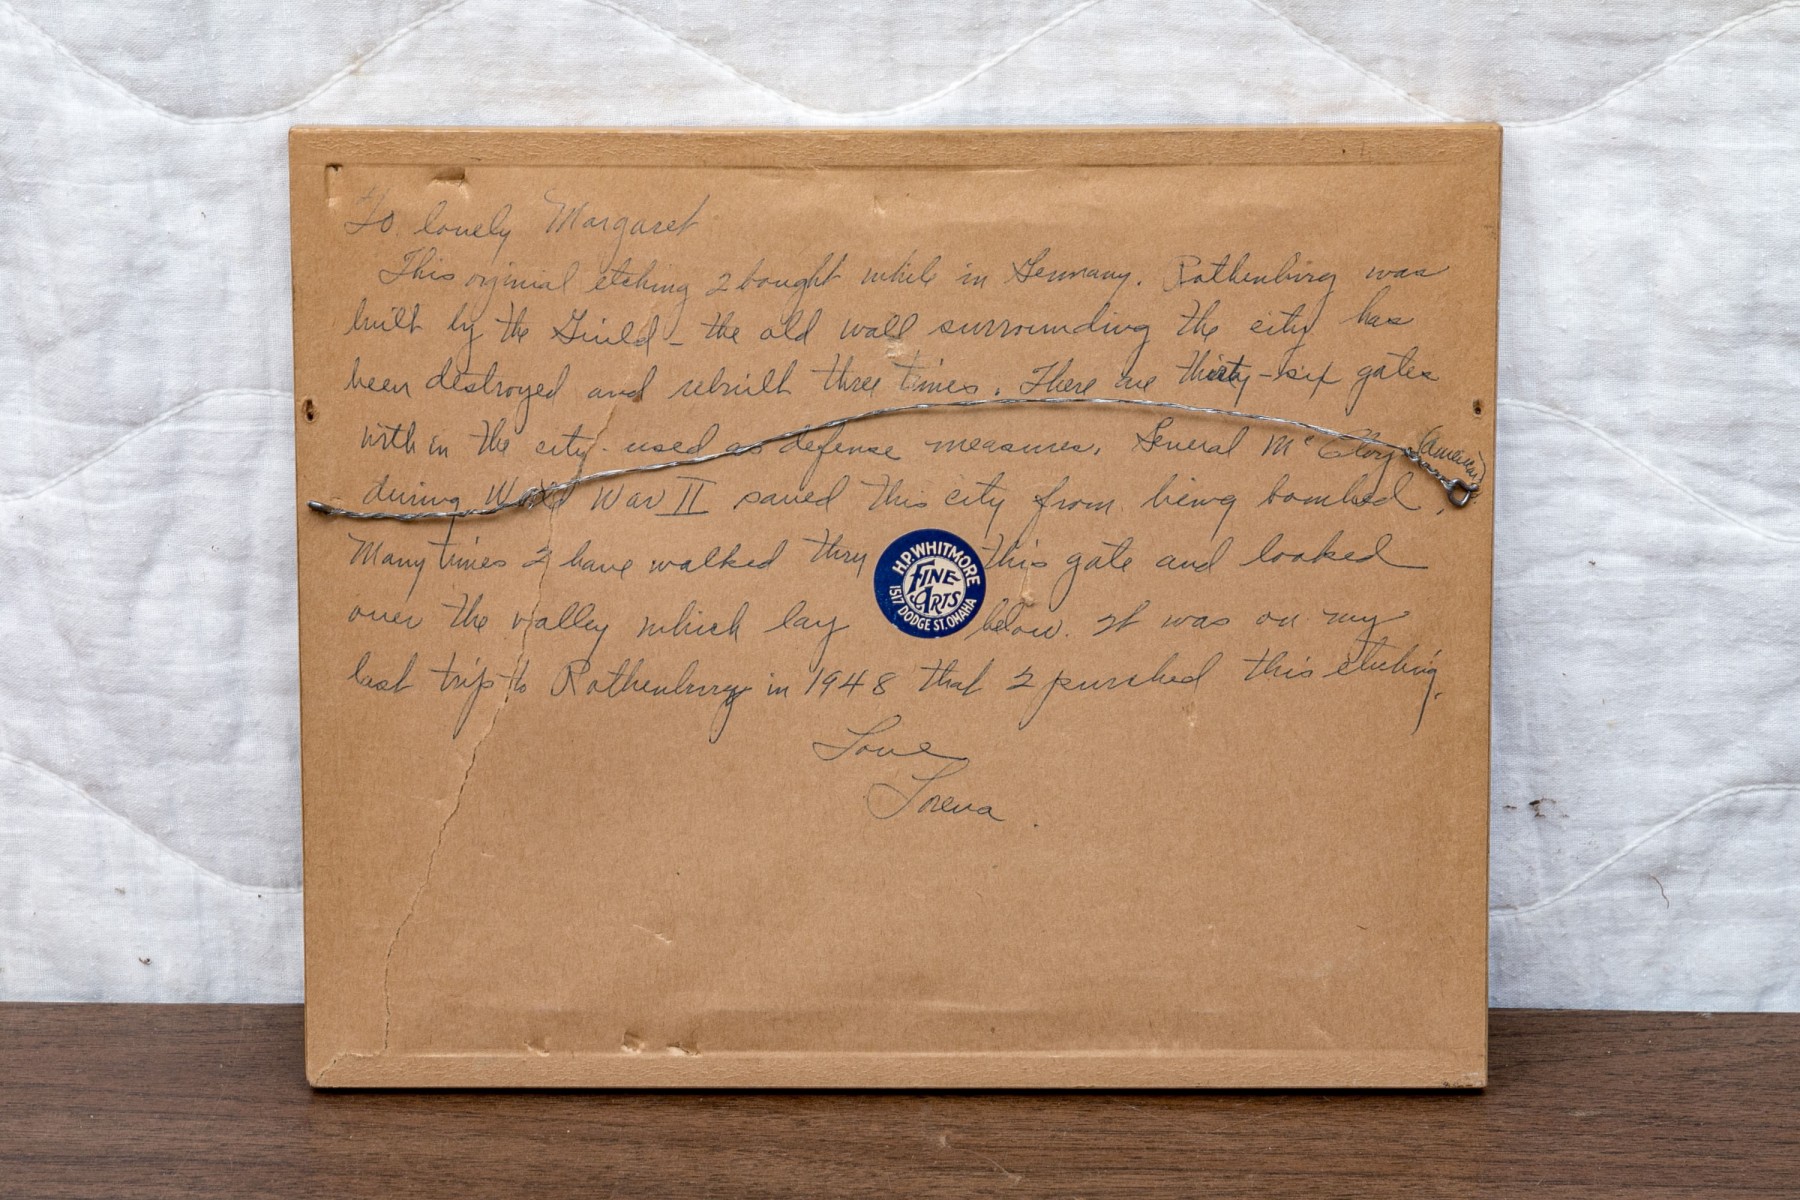 To lovely Margaret
This orginial etching I bought while in Germany. Rothenburg was
built by the Guild - the old wall surrounding the city has
been destroyed and rebuilt three times. There are thirty-six gates
with in the city - used as defense measures. General McCloy (American)
during World War II saved this city from being bombed.
Many times I have walked thru this gate and looked
over the valley which lay below. It was on my
last trip to Rothenburg in 1948 that I purched this etching.
Love
Lorena
H.P. WHITMORE
FINE
ARTS
1517 DODGE ST. OMAHA